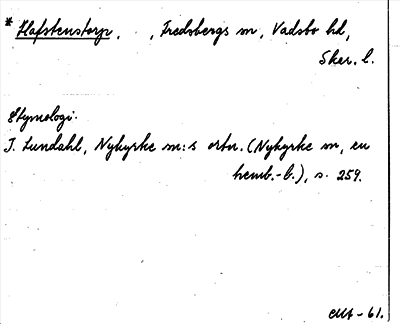 * Hafstenstorp, , Fredsbergs sn, Vadsbo hd,
Skar. l.
Etymologi.
J. Lundahl, Nykyrke sn:s ortn. (Nykyrke sn, en
hemb.-b.), s. 259.
-61.